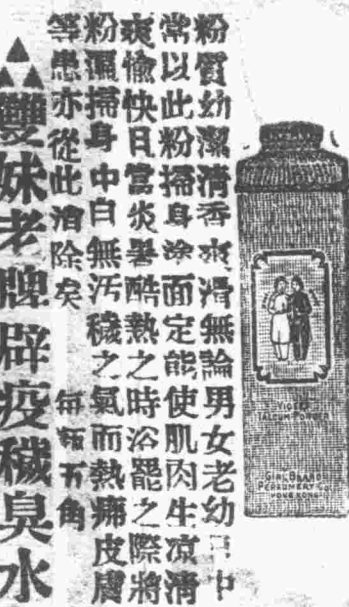 粉質幼潔清香爽滑無論男女老幼日中
常以此粉掃身塗面定能使肌肉生凉清
爽愉快日當炎暑酷熱之時浴罷之際將
粉濕掃身中白無汚穢之氣而熱痱皮膚
等患亦從此消除矣 每瓶五角
雙妹老牌辟疫穢臭水
VIOLET
TALCUM POWDER
GIRL BRAND
PERFUMERY CO.
HONG KONG